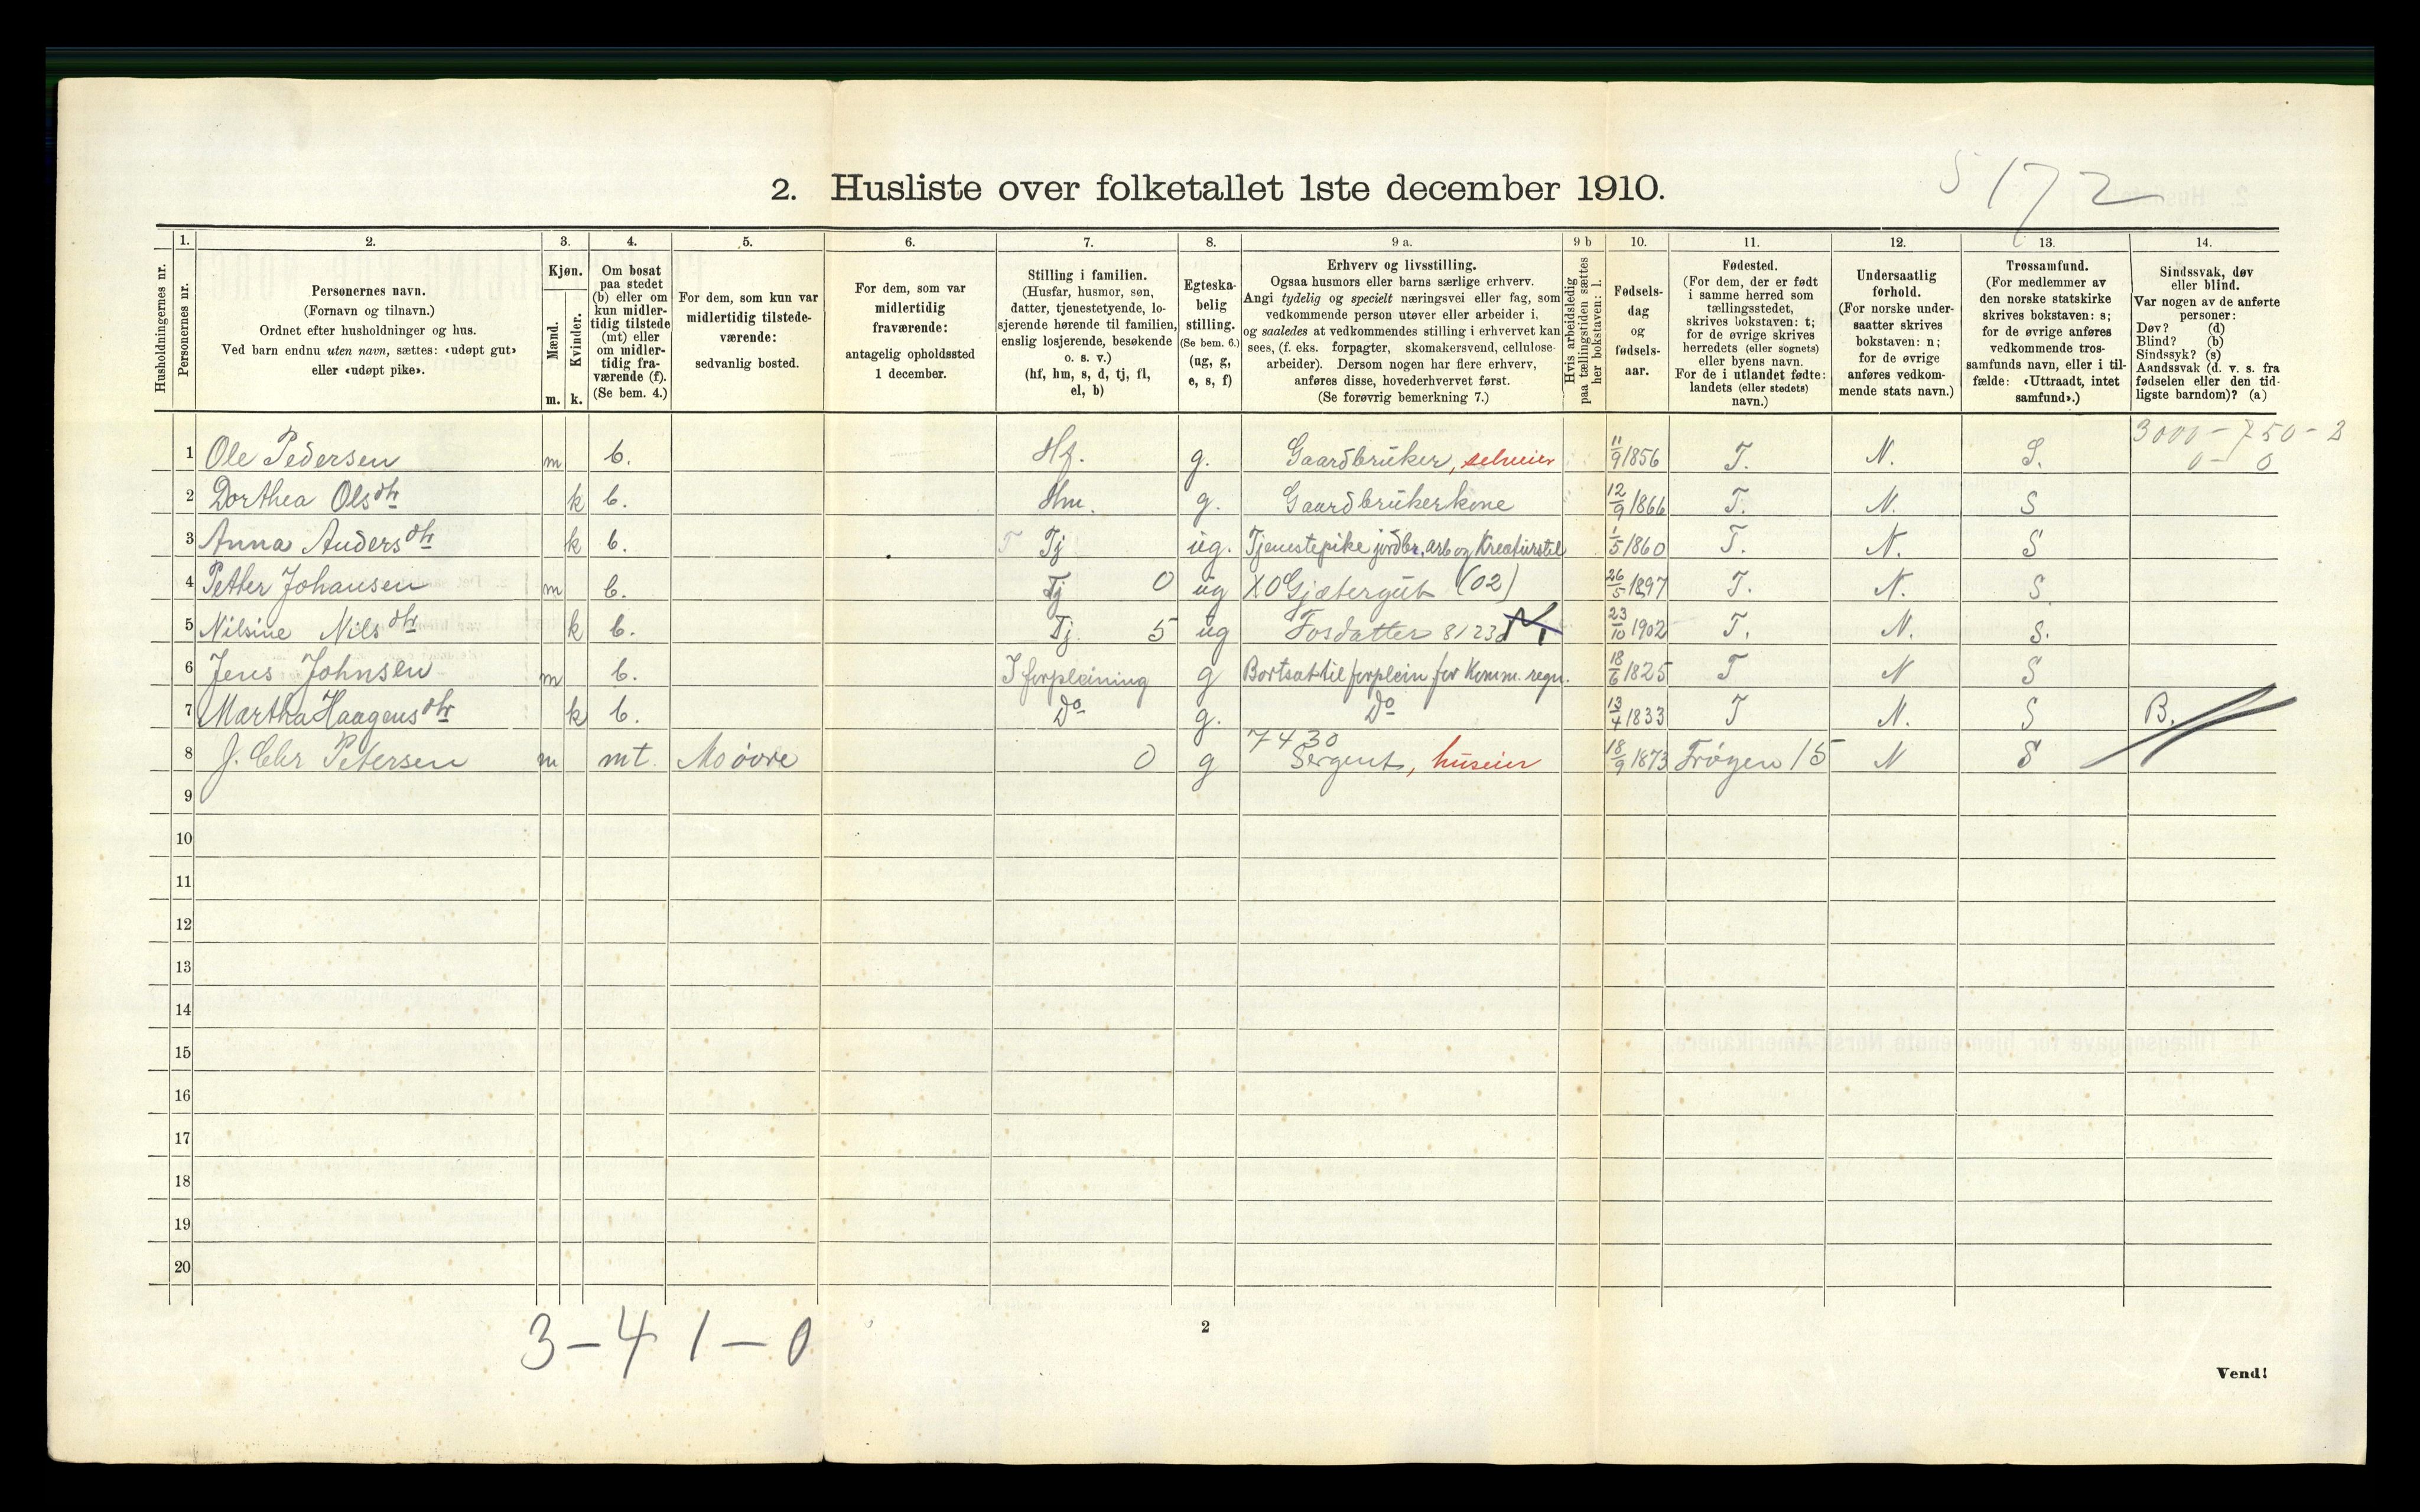 5 172
2. Husliste over folketallet 1ste december 1910.
Husholdningernes nr.
1.
Personernes nr.
2.
Personernes navn.
(Fornavn og tilnavn.)
Ordnet efter husholdninger og hus.
Ved barn endnu uten navn, sættes: «udøpt gut»
eller «udøpt pike».
3.
Kjøn.
Mænd.
Kvinder.
m. k.
4.
Om bosat
paa stedet
(b) eller om
kun midler-
tidig tilstede
(mt) eller
om midler-
tidig fra-
værende (f).
(Se bem. 4.)
5.
For dem, som kun var
midlertidig tilstede-
værende:
sedvanlig bosted.
6.
For dem, som var
midlertidig
fraværende:
antagelig opholdssted
1 december.
7.
Stilling i familien.
(Husfar, husmor, søn,
datter, tjenestetyende, lo-
sjerende hørende til familien,
enslig losjerende, besøkende
o. s. v.)
(hf, hm, s, d, tj, fl,
el, b)
8.
Egteska-
belig
stilling.
(Se bem. 6.)
(ug, g,
e, s, f)
9 a.
Erhverv og livsstilling.
Ogsaa husmors eller barns særlige erhverv.
Angi tydelig og specielt næringsvei eller fag, som
vedkommende person utøver eller arbeider i,
og saaledes at vedkommendes stilling i erhvervet kan
sees, (f. eks. forpagter, skomakersvend, cellulose-
arbeider). Dersom nogen har flere erhverv,
anføres disse, hovederhvervet først.
(Se forøvrig bemerkning 7.)
9 b
Hvis arbeidsledig
paa tællingstiden sættes
her bokstaven: l.
10.
Fødsels-
dag
og
fødsels-
aar.
11.
Fødested.
(For dem, der er født
i samme herred som
tællingsstedet,
skrives bokstaven: t;
for de øvrige skrives
herredets (eller sognets)
eller byens navn.
For de i utlandet fødte:
landets (eller stedets)
navn.)
12.
Undersaatlig
forhold.
(For norske under-
saatter skrives
bokstaven: n;
for de øvrige
anføres vedkom-
mende stats navn.)
13.
Trossamfund.
(For medlemmer av
den norske statskirke
skrives bokstaven: s;
for de øvrige anføres
vedkommende tros-
samfunds navn, eller i til-
fælde: «Uttraadt, intet
samfund».)
14.
Sindssvak, døv
eller blind.
Var nogen av de anførte
personer:
Døv? (d)
Blind? (b)
Sindssyk? (s)
Aandssvak (d. v. s. fra
fødselen eller den tid-
ligste barndom)? (a)
3000 - 750 - 2
1 Ole Pedersen m b. Hf. g. Gaardbruker, selveier 11/9 1856 T. N. S. 0 - 0
2 Dorthea Olsdtr k b. Hm. g. Gaardbrukerkone 12/9 1866 T. N. S
3 Anna Andersdtr k b. T Tj ug. Tjenestepike jordbr. arb og Kreaturstel 1/5 1860 T. N. S
4 Petter Johansen m b. Tj 0 ug X0 Gjætergut (02) 26/5 1897 T. N. S.
5 Nilsine Nilsdtr k b. Tj. 5 ug Fosdatter 8123 23/10 1902 T. N. S.
6 Jens Johnsen m b. I forpleining g Bortsat til forplein for Komm. regn. 18/6 1825 T N S
7 Martha Haagensdtr k b. Do g. Do 13/4 1833 T N. S B.
7430
8 J. Chr Petersen m mt. Mo övre 0 g Sergent, huseier 18/9 1873 Tröyen 15 N S
9
10
11
12
13
14
15
16
17
18
19
20
3 - 4 1 - 0
2
Vend!